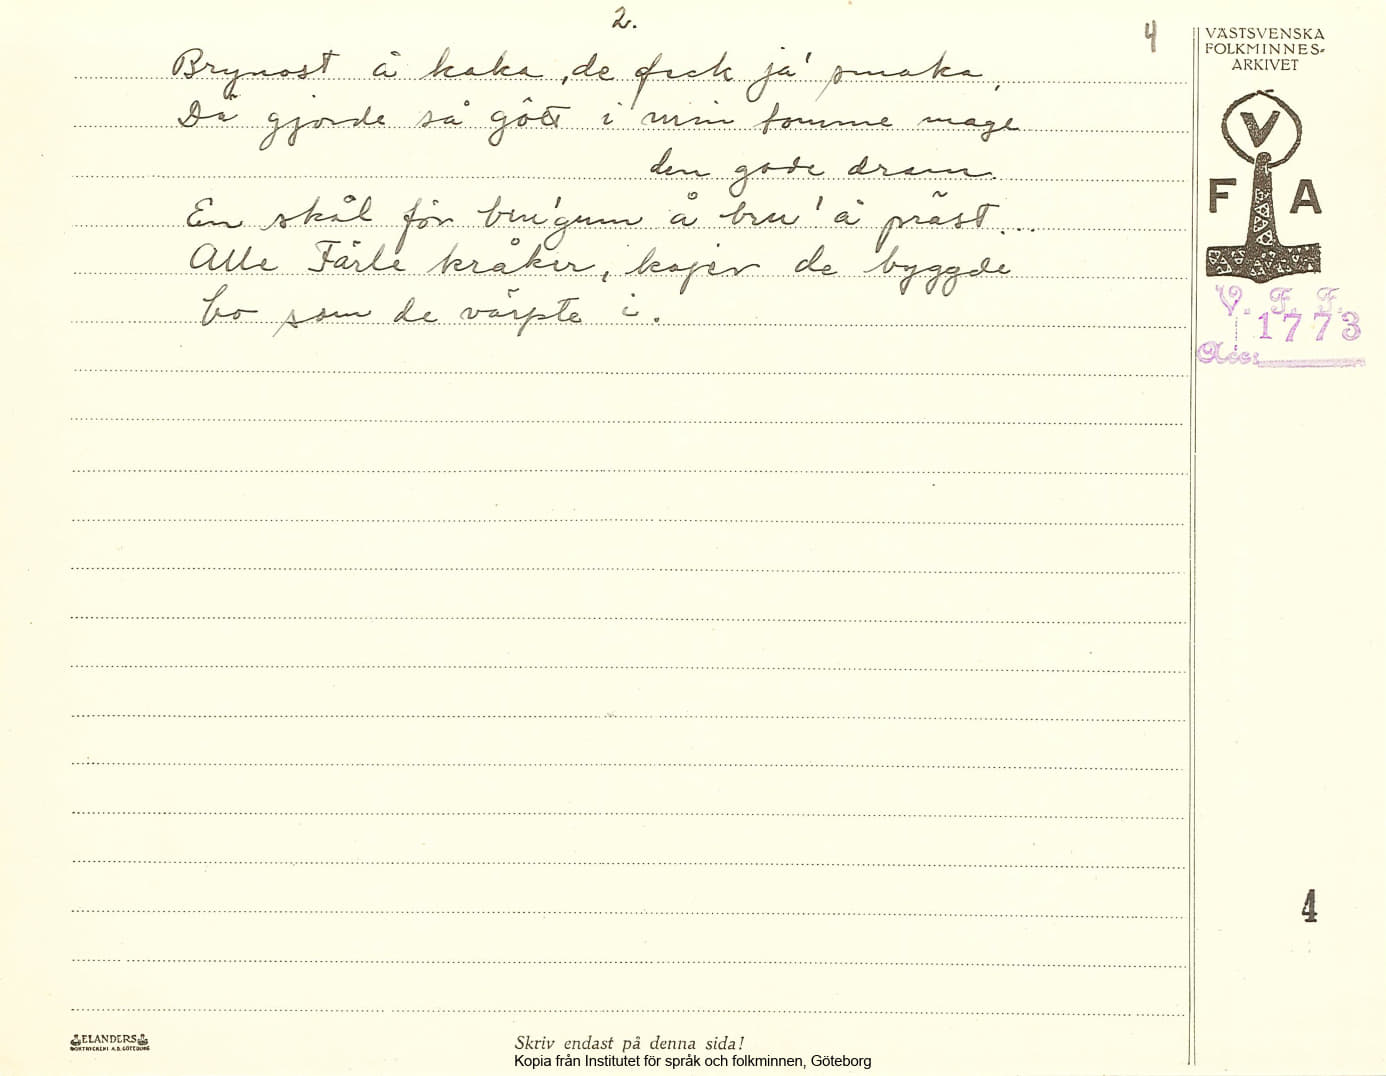 2.
4
Brynost å kaka, de feck ja' smaka,
Dä gjorde så gôtt i min tomme mage
den gode dram.
En skål för bru'gum å bru' å präst...
Alle Färle kråker, kajer de byggde
bo som de värpte i.
VÄSTSVENSKA
FOLKMINNES-
ARKIVET
V
F A
V. F. F.
1773
Acc:
4
ELANDERS
BOKTRYCKERI A.B. GÖTEBORG
Skriv endast på denna sida!
Kopia från Institutet för språk och folkminnen, Göteborg